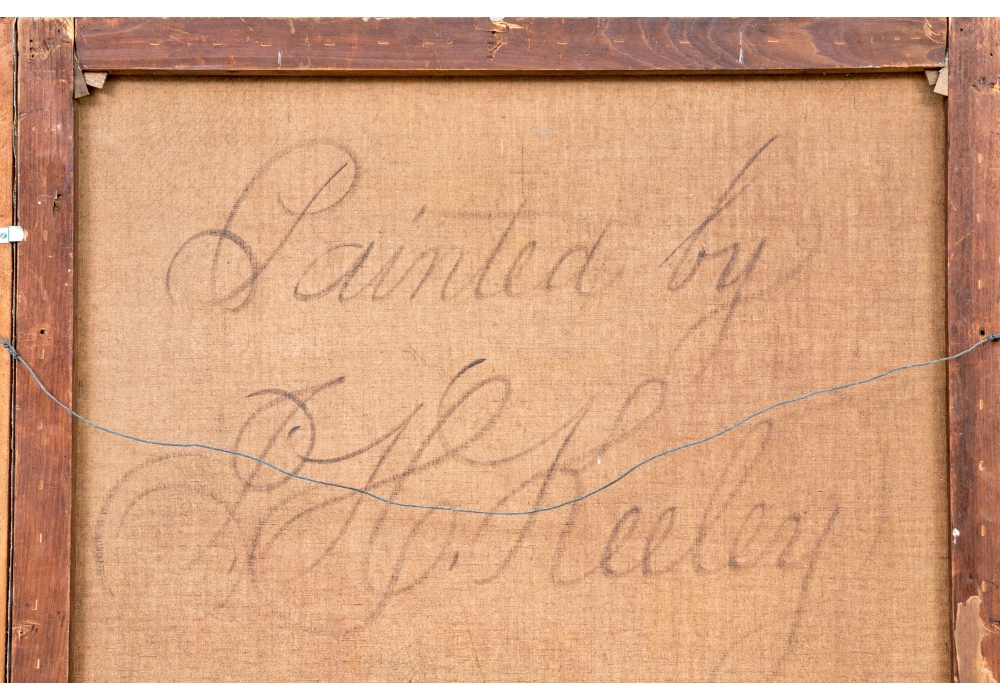 Painted by
J. H. Keeley